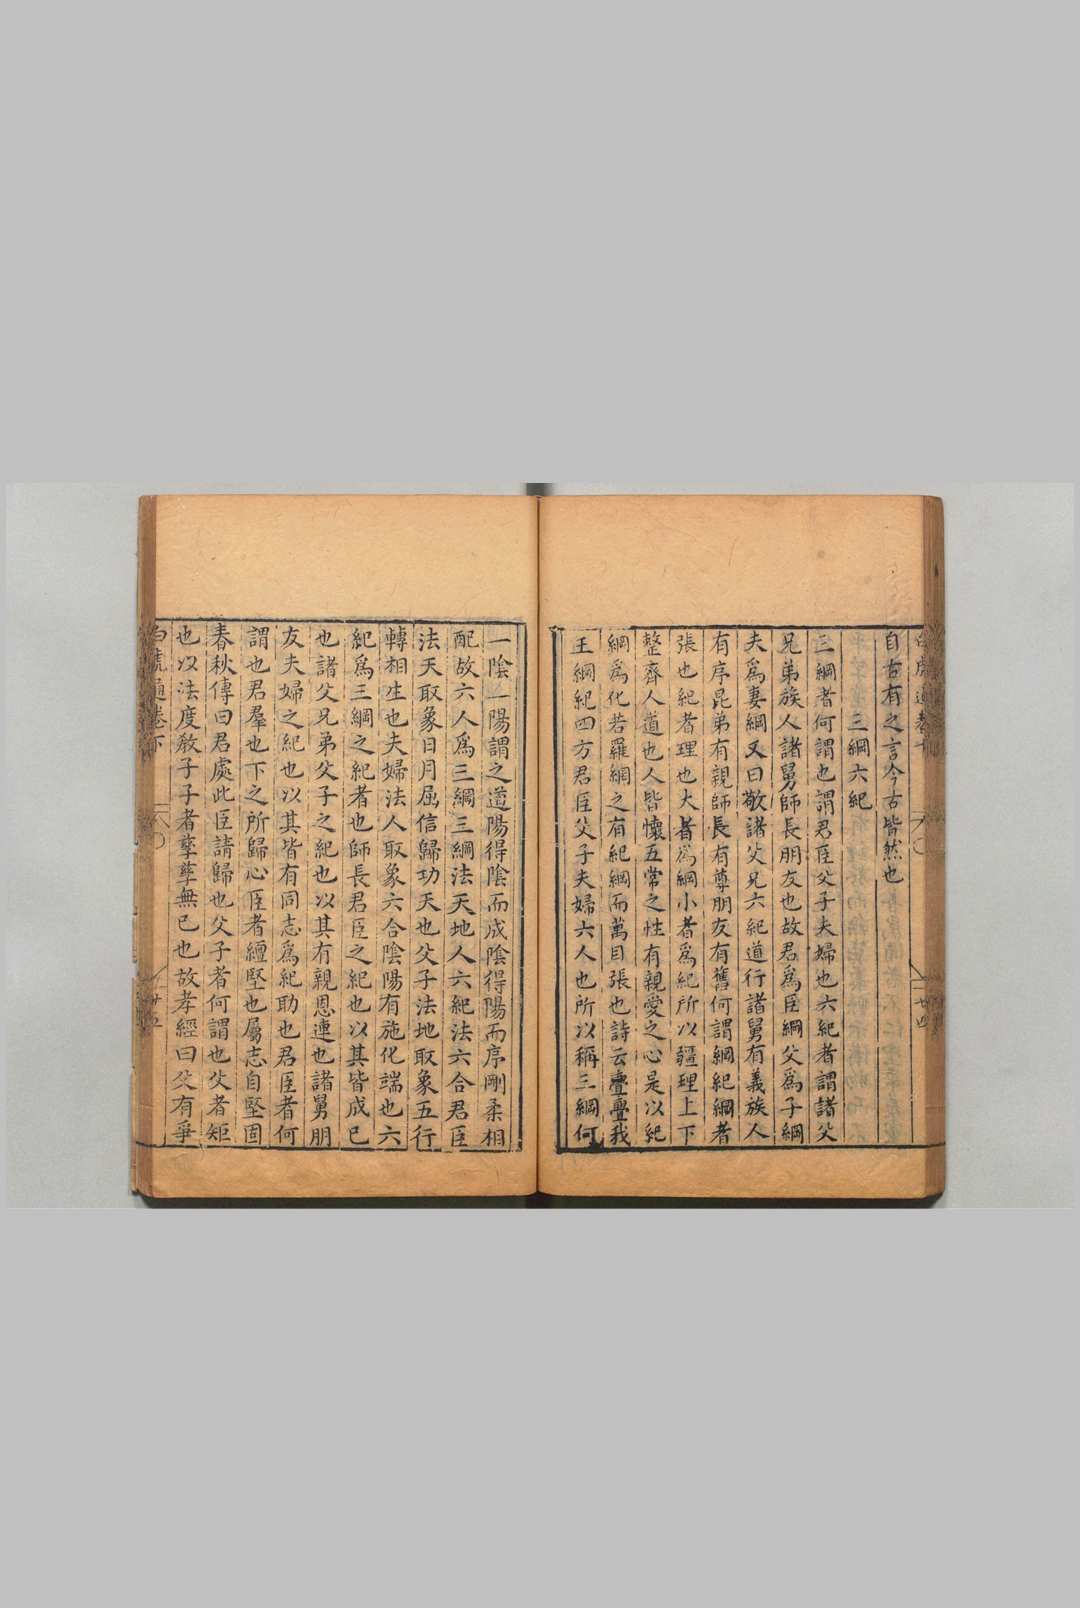 自古有之言今古皆然也
三綱六紀
三綱者何謂也謂君臣父子夫婦也六紀者謂諸父
兄弟族人諸舅師長朋友也故君爲臣綱父爲子綱
夫爲妻綱又曰敬諸父兄六紀道行諸舅有義族人
有序昆弟有親師長有尊朋友有舊何謂綱紀綱者
張也紀者理也大者爲綱小者爲紀所以疆理上下
整齊人道也人皆懷五常之性有親愛之心是以紀
綱爲化若羅綱之有紀綱而萬目張也詩云亹亹我
王綱紀四方君臣父子夫婦六人也所以稱三綱何
一陰一陽謂之道陽得陰而成陰得陽而序剛柔相
配故六人爲三綱三綱法天地人六紀法六合君臣
法天取象日月屈信歸功天也父子法地取象五行
轉相生也夫婦法人取象六合陰陽有施化端也六
紀爲三綱之紀者也師長君臣之紀也以其皆成已
也諸父兄弟父子之紀也以其有親恩連也諸舅朋
友夫婦之紀也以其皆有同志爲紀助也君臣者何
謂也君羣也下之所歸心臣者纏堅也屬志自堅固
春秋傳曰君處此臣請歸也父子者何謂也父者矩
也以法度教子子者孳孳無已也故孝經曰父有爭
白虎通卷下
廿五